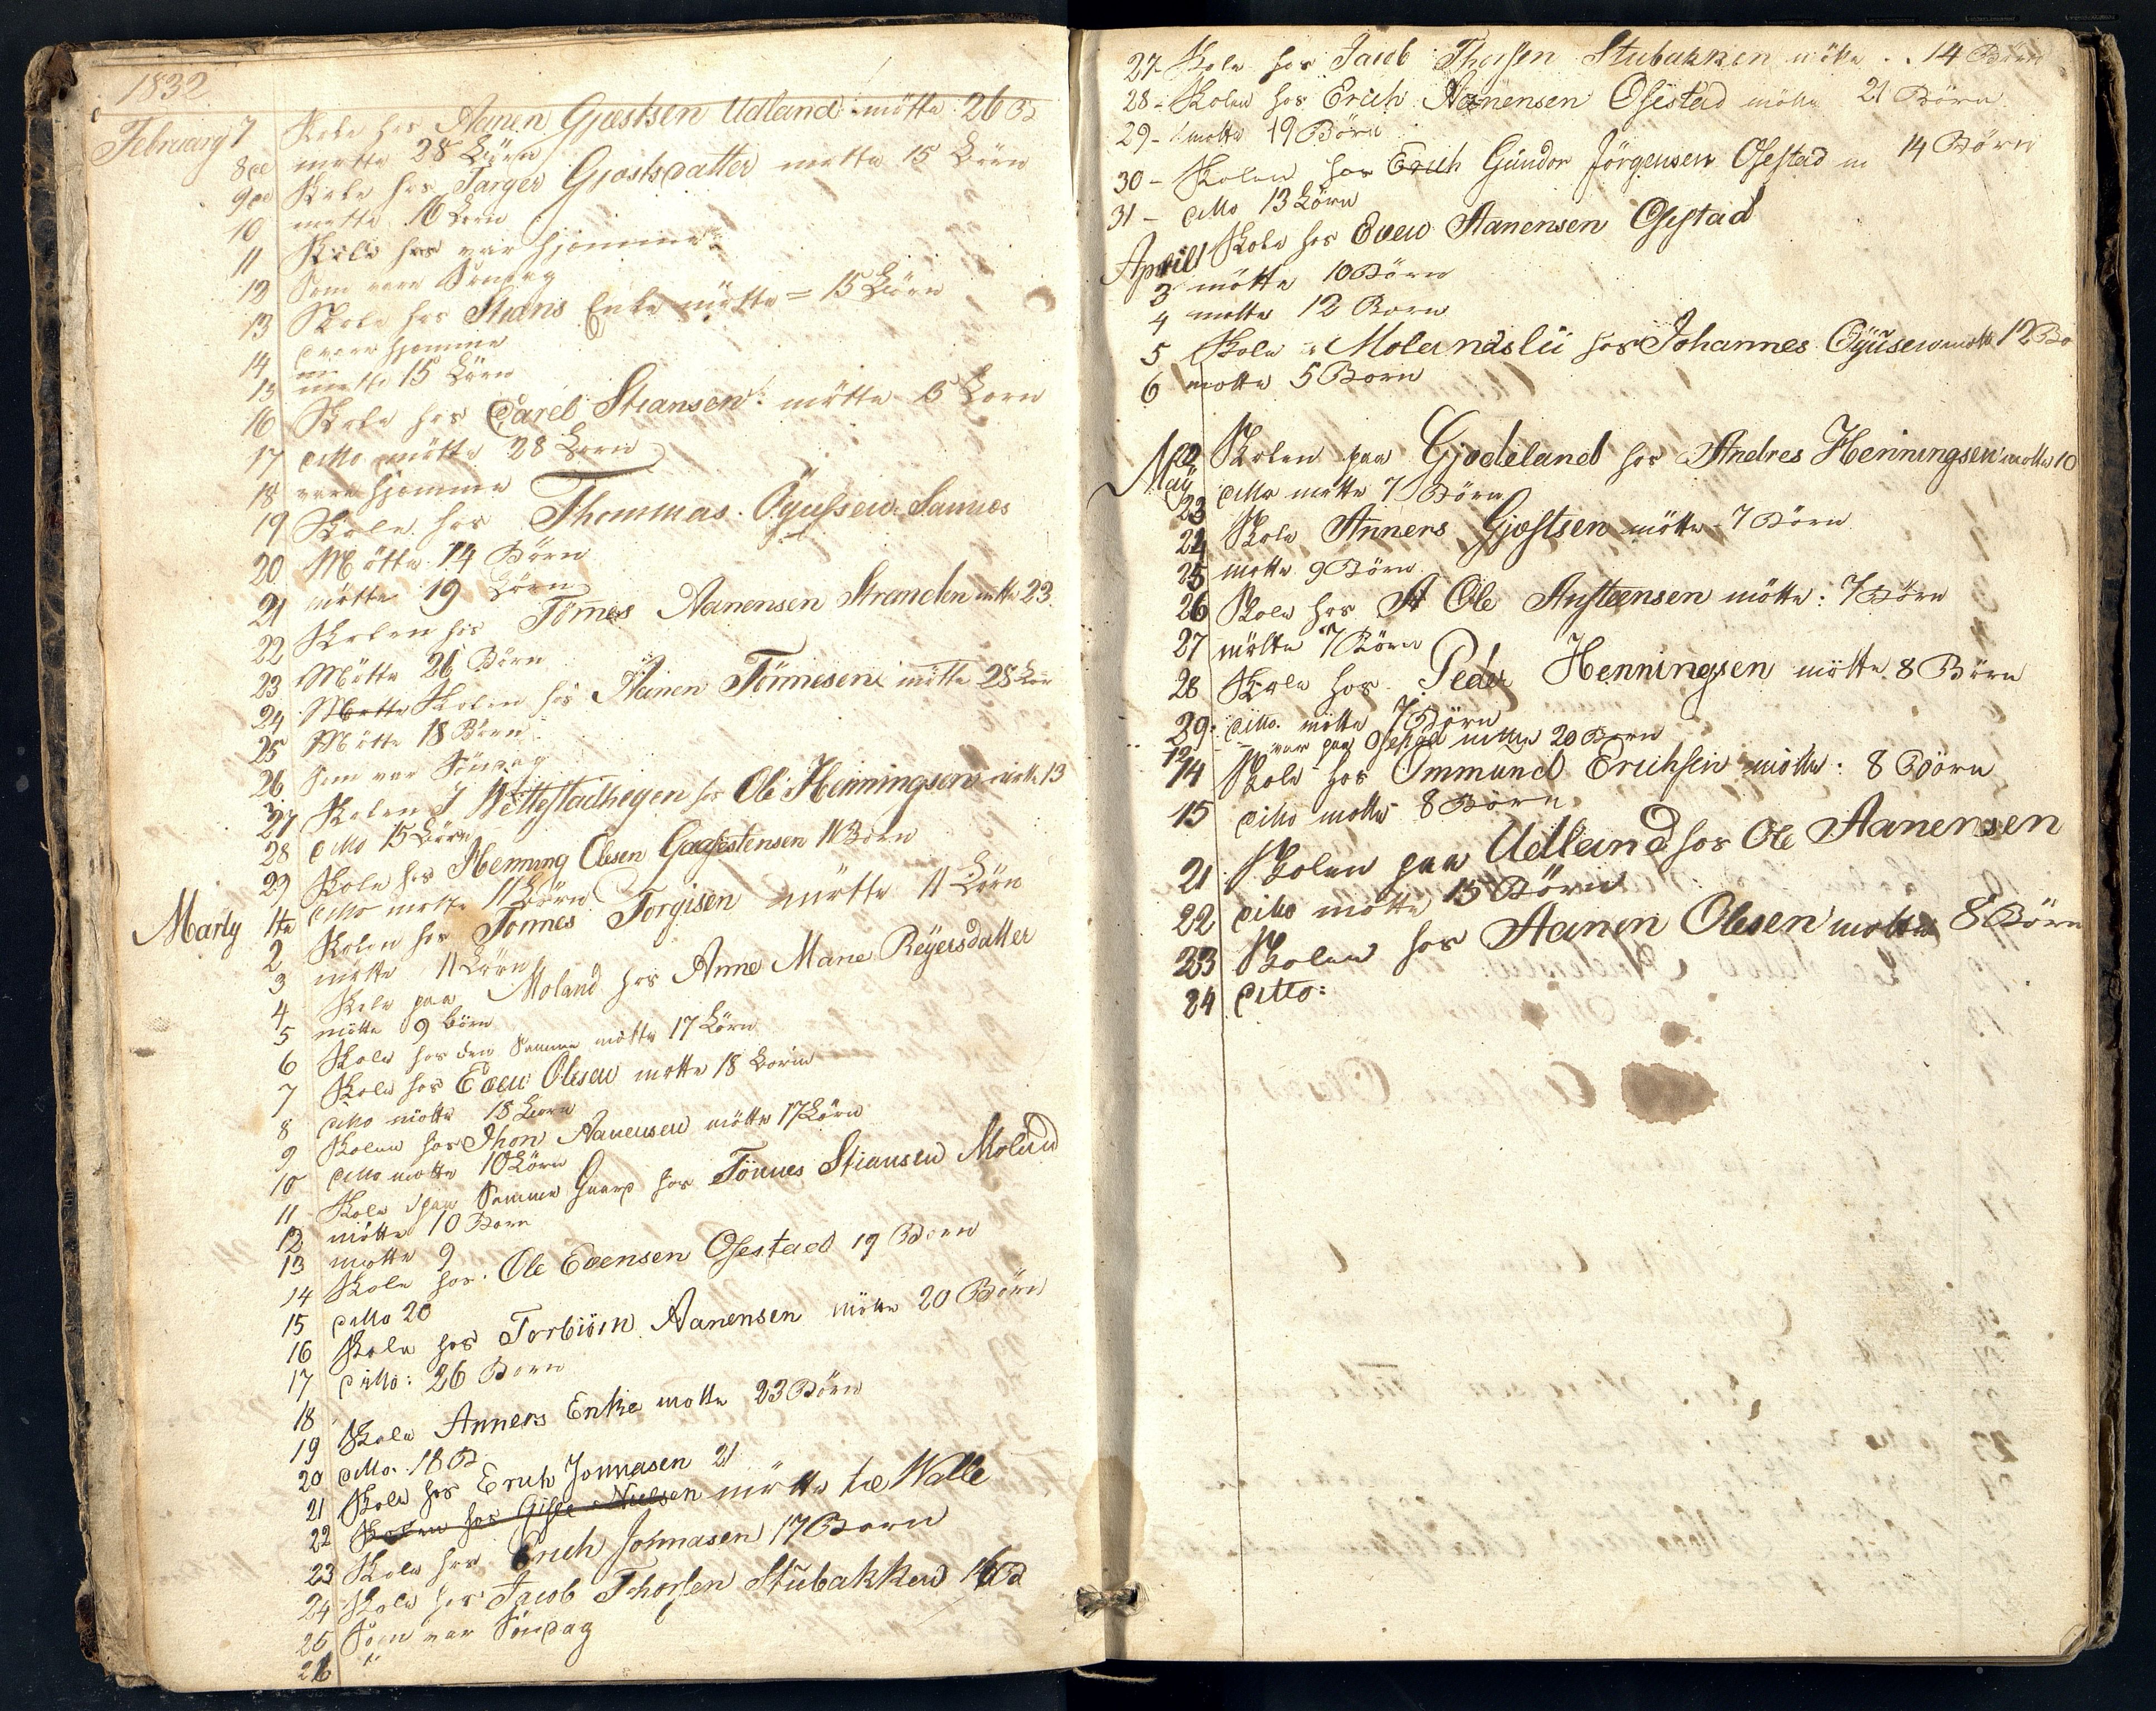 1832
February 7 Skole hos Aanen Gjæstsen Udland mötte 26 B
8de mötte 28 Börn
9de Skole hos Targer Gjæstsdatter mötte 15 Börn
10 mötte 16 Börn
11 Skole hos var hjemme
12 Som var Söndag
13 Skole hos Stians Enke mötte = 15 Börn
14 var hjemme
15 mötte 15 Börn
16 Skole hos Carel Stiansen mötte Börn
17 ditto mötte 28 Börn
18 var hjemme
19 Skole hos Thommas Öÿufsen Sannes
20 Mötte 14 Börn
21 mötte 19 Börn
22 Skolen hos Tönnes Aanensen Stranden mötte 23
23 Mötte 26 Börn
24 Mötte Skolen hos Aanen Tönnesen mötte 28 Börn
25 Mötte 18 Börn
26 Som var Söndag
27 Skolen I hos Ole Henningsen mötte 13
28 ditto 15 Börn
29 Skole hos Henning Olesen 11 Börn
Marty 1te ditto mötte 11 Börn
2 Skolen hos Tönnes Torgisen mötte 11 Börn
3 mötte 11 Börn
4 Skole paa Moland hos Anne Marie Reÿersdatter
5 mötte 9 börn
6 Skole hos den Samme mötte 17 Börn
7 Skole hos Even Olesen mötte 18 Börn
8 ditto mötte 18 Börn
9 Skolen hos Jhon Aanensen mötte 17 Börn
10 ditto mötte 10 Börn
11 Skole paa Samme Gaard hos Tönnes Stiansen Molund
12 mötte 10 Börn
13 mötte 9
14 Skole hos Ole Evensen Osestad 19 Börn
15 ditto 20
16 Skole hos Torbiörn Aanensen mötte 20 Börn
17 ditto: 26 Börn
18
19 Skole Anners Enke mötte 23 Börn
20 ditto 18 B
21 Skole hos Erich Jonnasen 21
22 Skolen hos Gisle Nielsen mötte
23 Skole hos Erich Jonnasen 17 Börn
24 Skole hos Jacob Thorsen Stubakken
25 Som var Söndag
26 "
27 - Skole hos Jacob Thorsen Stubakken mötte 14 Börn
28 - Skolen hos Erich Aanensen Osestad mötte 21 Börn
29 - mötte 19 Börn
30 - Skolen hos Erich Gundor Jörgensen Osestad m 14 Börn
31 - ditto 13 Börn
April 1 Skole hos Even Aanensen Osestad
3 mötte 10 Börn
4 mötte 12 Börn
5 Skole i Molandslii hos Johannes Öÿusen mötte 12 Bö
6 mötte 5 Börn
Maÿ 22 Skolen paa Gjodeland hos Andres Henningsen mötte 10
23 ditto mötte 7 Börn
24 Skole Anners Gjæstsen mötte - 7 Börn
25 mötte 9 Börn
26 Skole hos A Ole Austeensen mötte: 7 Börn
27 mötte 7 Börn
28 Skole hos Peder Henningsen mötte 8 Börn
29 ditto. mötte 7 Börn
12 var paa Osestad mötte 20 Börn
14 Skole hos Ommund Erichsen mötte: 8 Börn
15 ditto mötte 8 Börn
21 Skolen paa Udland hos Ole Aanensen
22 ditto mötte 15 Börn
23 Skolen hos Aanen Olesen mötte 8 Börn
24 ditto: